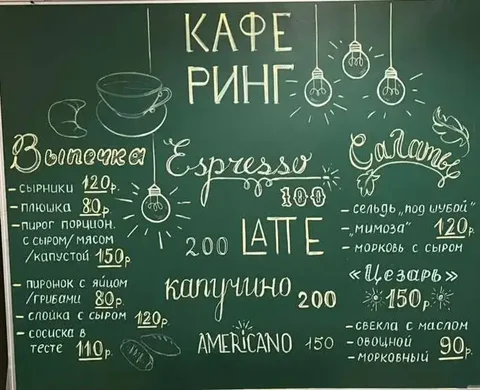 КАФЕ
РИНГ
Выпечка
- сырники 120р.
- плюшка 80р.
- пирог порцион.
с сыром/мясом
/капустой 150р.
- пиронок с яйцом
/грибами 80р.
- слойка с сыром 120р.
- сосиска в
тесте 110р.
Espresso
100
200 LATTE
капучино 200
AMERICANO 150
Салаты
- сельдь "под шубой"
- "мимоза" 120р.
- морковь с сыром
«Цезарь»
150р.
- свекла с маслом
- овощной 90р.
- морковный